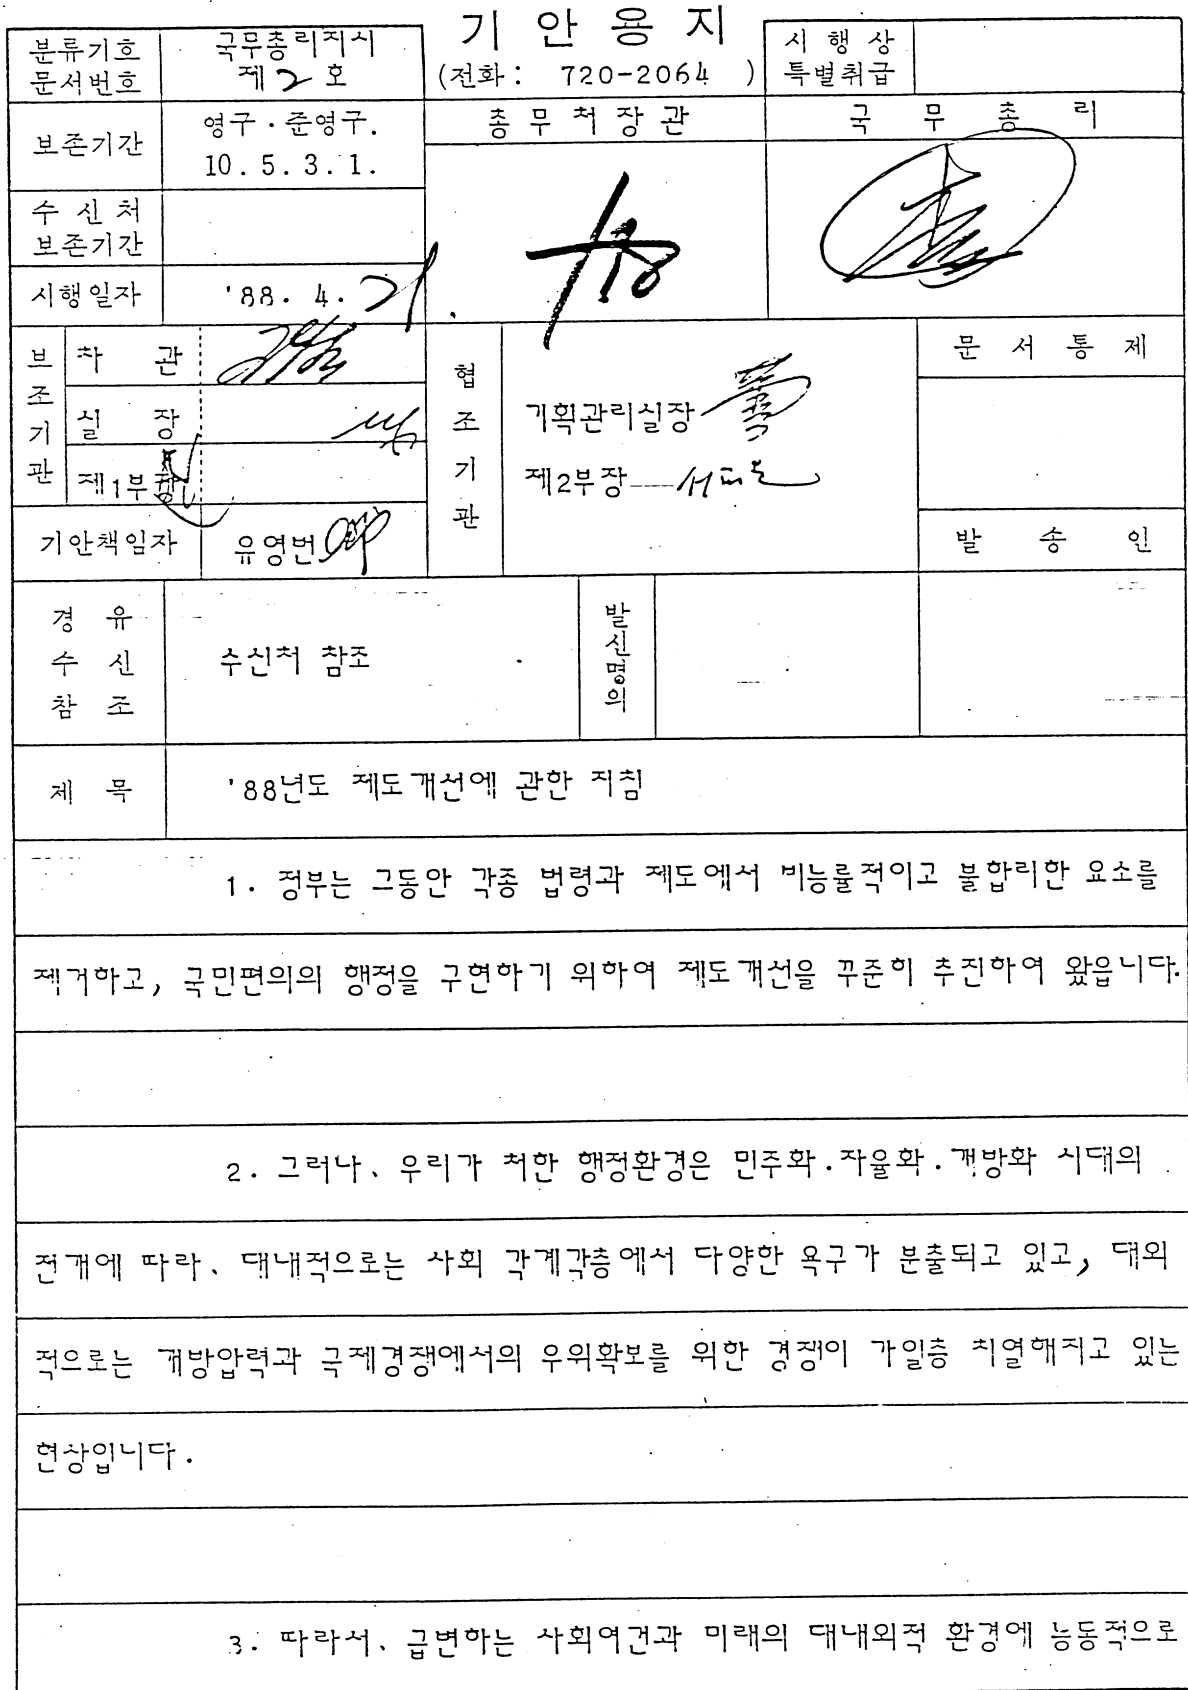 기 안 용 지
분류기호
문서번호
국무총리지시
제 2 호
(전화 : 720-2064 )
시 행 상
특별취급
보존기간
영구 · 준영구.
10. 5. 3. 1.
총 무 처 장 관
국 무 총 리
수 신 처
보존기간
시행일자
'88. 4. 21.
보조기관
차 관
실 장
제1부장
협조기관
기획관리실장
제2부장
문 서 통 제
기안책임자
유영번
발 송 인
경 유
수 신
참 조
수신처 참조
발신명의
제 목
'88년도 제도개선에 관한 지침
1. 정부는 그동안 각종 법령과 제도에서 비능률적이고 불합리한 요소를
제거하고, 국민편의의 행정을 구현하기 위하여 제도개선을 꾸준히 추진하여 왔읍니다.
2. 그러나、우리가 처한 행정환경은 민주화.자율화.개방화 시대의
전개에 따라、대내적으로는 사회 각계각층에서 다양한 욕구가 분출되고 있고, 대외
적으로는 개방압력과 국제경쟁에서의 우위확보를 위한 경쟁이 가일층 치열해지고 있는
현상입니다.
3. 따라서、급변하는 사회여건과 미래의 대내외적 환경에 능동적으로